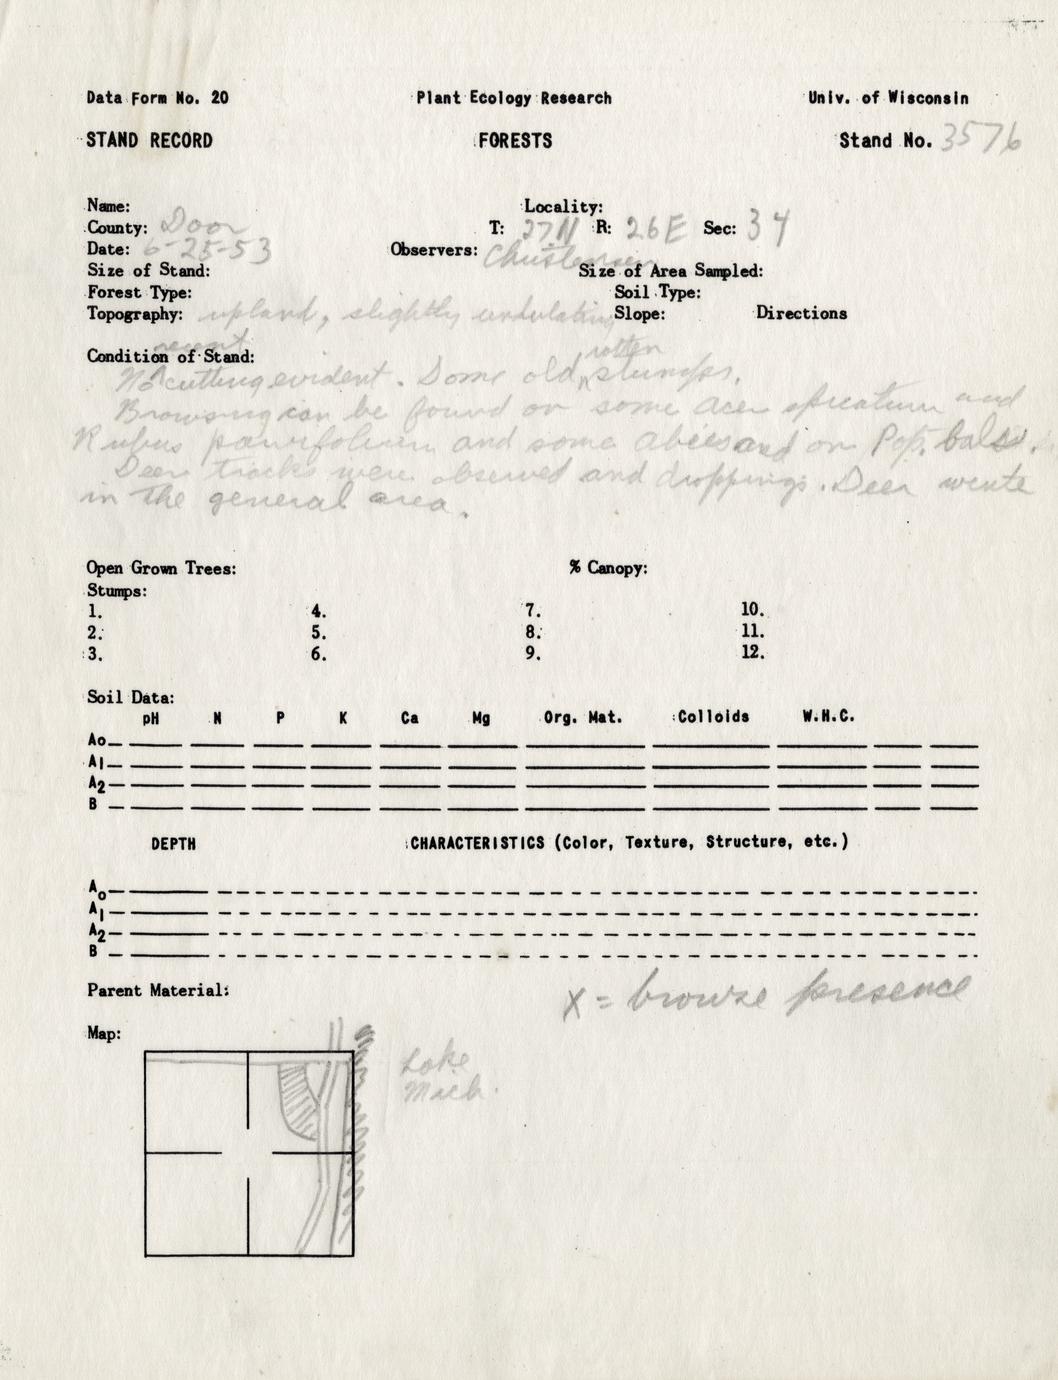 Data Form No. 20 Plant Ecology Research Univ. of Wisconsin
STAND RECORD FORESTS Stand No. 3576
Name: Locality:
County: Door T: 27N R: 26E Sec: 34
Date: 6-25-53 Observers: Christensen
Size of Stand: Size of Area Sampled:
Forest Type: Soil Type:
Topography: upland, slightly undulating Slope: Directions
Condition of Stand:
No recent cutting evident. Some old rotten stumps.
Browsing can be found on some Acer spicatum and
Rubus parvifolium and some abies and on Pop. bals.
Deer tracks were observed and droppings. Deer wente
in the general area.
Open Grown Trees: % Canopy:
Stumps:
1. 4. 7. 10.
2. 5. 8. 11.
3. 6. 9. 12.
Soil Data:
pH N P K Ca Mg Org. Mat. Colloids W.H.C.
Ao
A1
A2
B
DEPTH CHARACTERISTICS (Color, Texture, Structure, etc.)
Ao
A1
A2
B
Parent Material:
X = browse presence
Map:
Lake
Mich.